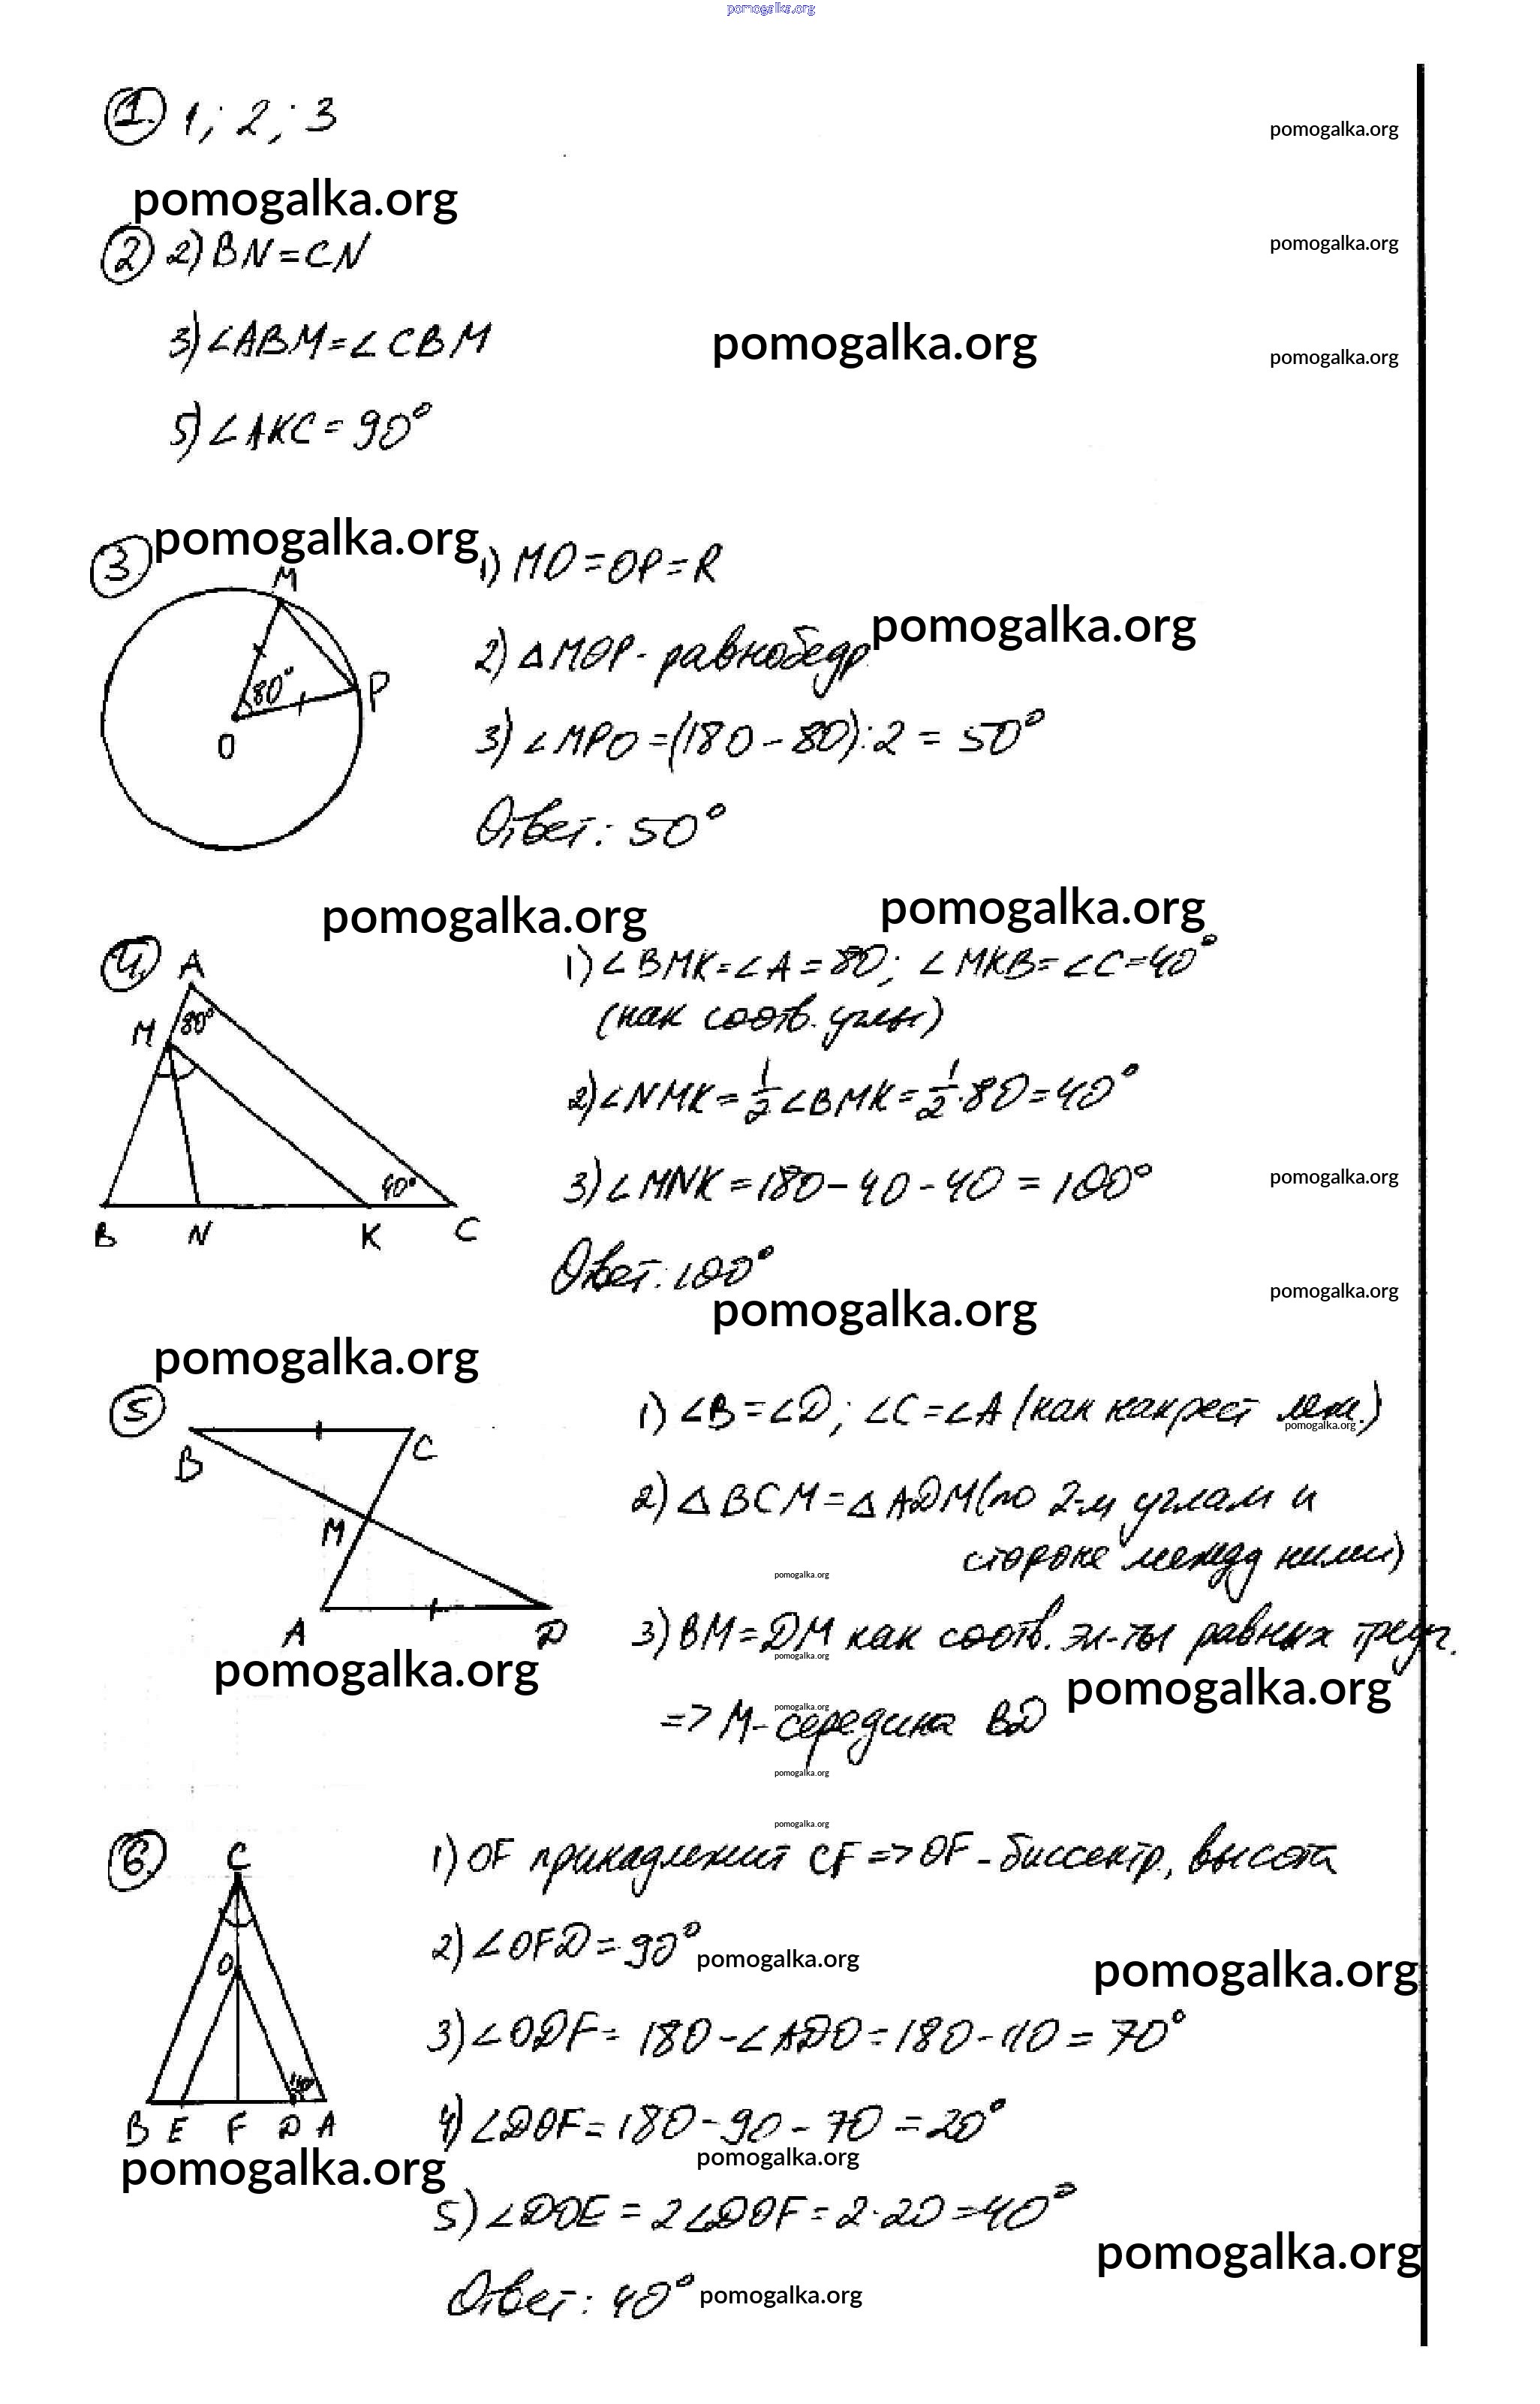 pomogalka.org
1. 1; 2; 3
pomogalka.org
pomogalka.org
2 2) BN = CN
pomogalka.org
3) ∠ABM = ∠CBM
pomogalka.org
pomogalka.org
5) ∠AKC = 90°
3. pomogalka.org
1) MO = OP = R
M
80°
P
O
2) △MOP - равнобедр.
pomogalka.org
3) ∠MPO = (180 - 80) : 2 = 50°
Ответ: 50°
pomogalka.org
pomogalka.org
4.
A
M
80°
40°
B N K C
1) ∠BMK = ∠A = 80; ∠MKB = ∠C = 40°
(как соотв. углы)
2) ∠NMK = 1/2 ∠BMK = 1/2 · 80 = 40°
3) ∠MNK = 180 - 40 - 40 = 100°
pomogalka.org
Ответ: 100°
pomogalka.org
pomogalka.org
pomogalka.org
5
B
C
M
A
D
1) ∠B = ∠D; ∠C = ∠A (как накрест леж.)
pomogalka.org
2) △BCM = △ADM (по 2-м углам и
стороне между ними)
pomogalka.org
3) BM = DM как соотв. эл-ты равных треуг.
pomogalka.org
pomogalka.org
pomogalka.org
=> M - середина BD
pomogalka.org
pomogalka.org
pomogalka.org
6.
C
O
110°
B E F D A
1) OF принадлежит CF => OF - биссектр, высота
2) ∠OFD = 90°
pomogalka.org
pomogalka.org
3) ∠ODF = 180 - ∠ADO = 180 - 110 = 70°
4) ∠DOF = 180 - 90 - 70 = 20°
pomogalka.org
pomogalka.org
5) ∠DOE = 2∠DOF = 2 · 20 = 40°
pomogalka.org
Ответ: 40°
pomogalka.org